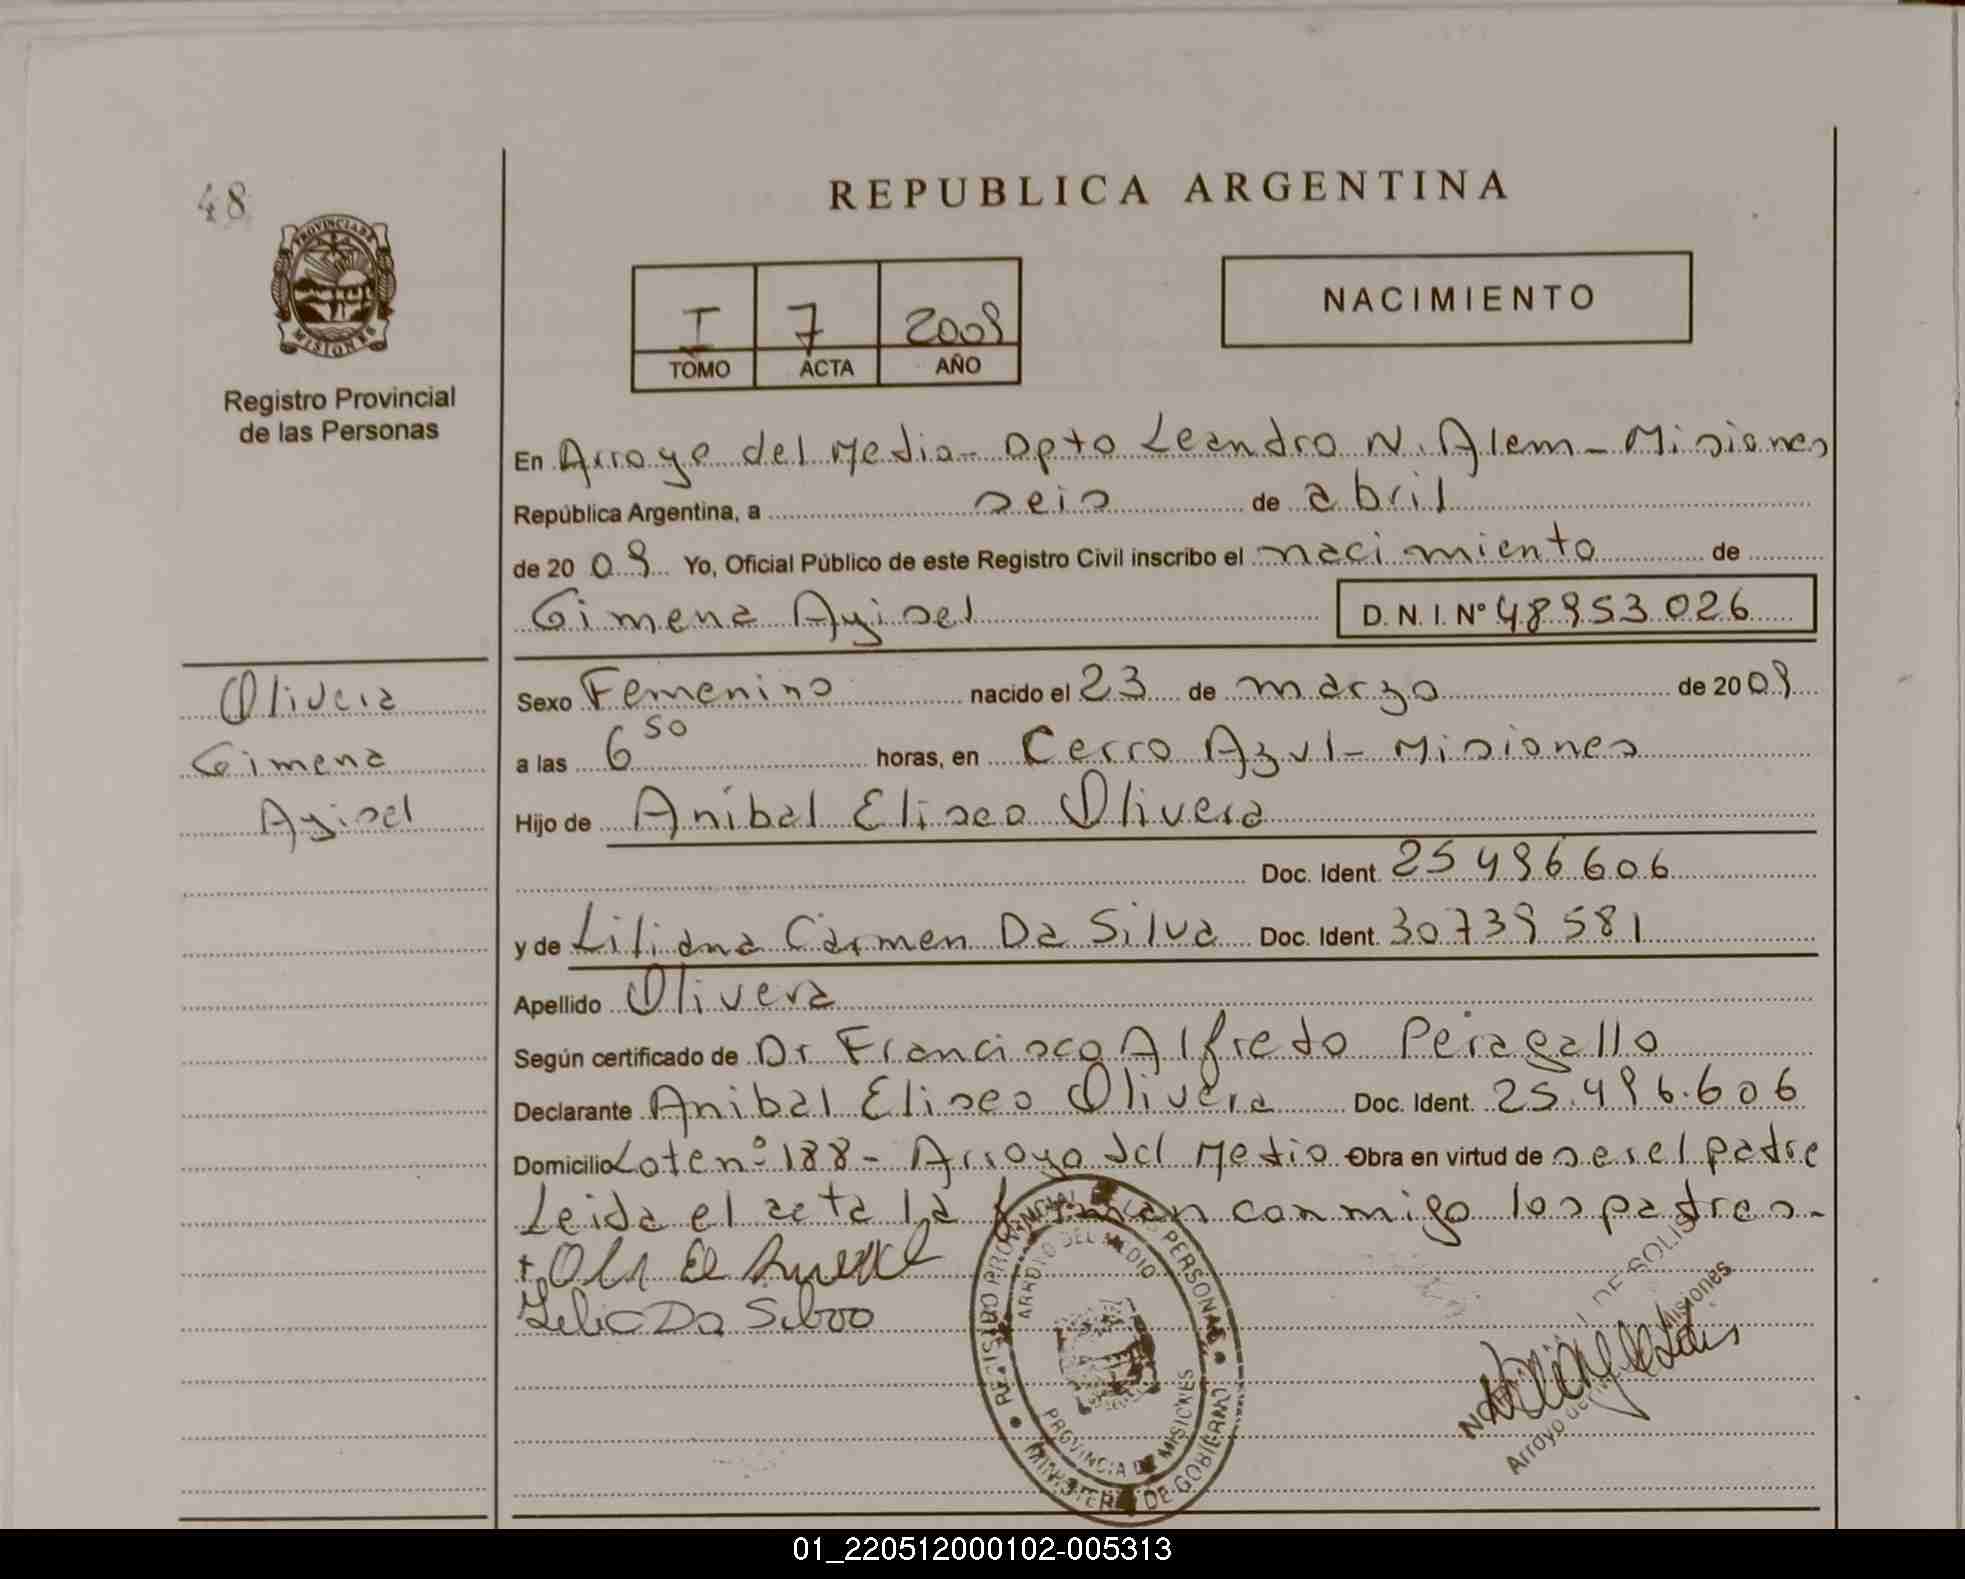 48
PROVINCIA DE
MISIONES
Registro Provincial
de las Personas
REPUBLICA ARGENTINA
I 7 2009
TOMO ACTA AÑO
NACIMIENTO
En Arroyo del Medio - Dpto Leandro N. Alem - Misiones
República Argentina, a seis de abril
de 2009 Yo, Oficial Público de este Registro Civil inscribo el nacimiento de
Gimena Ayisel D. N. I. Nº 48953026
Olivera
Gimena
Ayisel
Sexo Femenino nacido el 23 de marzo de 2009
a las 6 50 horas, en Cerro Azul - Misiones
Hijo de Aníbal Eliseo Olivera
Doc. Ident. 25496606
y de Liliana Carmen Da Silva Doc. Ident. 30739581
Apellido Olivera
Según certificado de Dr Francisco Alfredo Peragallo
Declarante Anibal Eliseo Olivera Doc. Ident. 25.496.606
Domicilio Lote nº 188 - Arroyo del Medio Obra en virtud de ser el padre
Leida el acta la firman conmigo los padres.-
REGISTRO PROVINCIAL DE LAS PERSONAS
ARROYO DEL MEDIO
PROVINCIA DE MISIONES
MINISTERIO DE GOBIERNO
DE SOLIS
Misiones
01_220512000102-005313